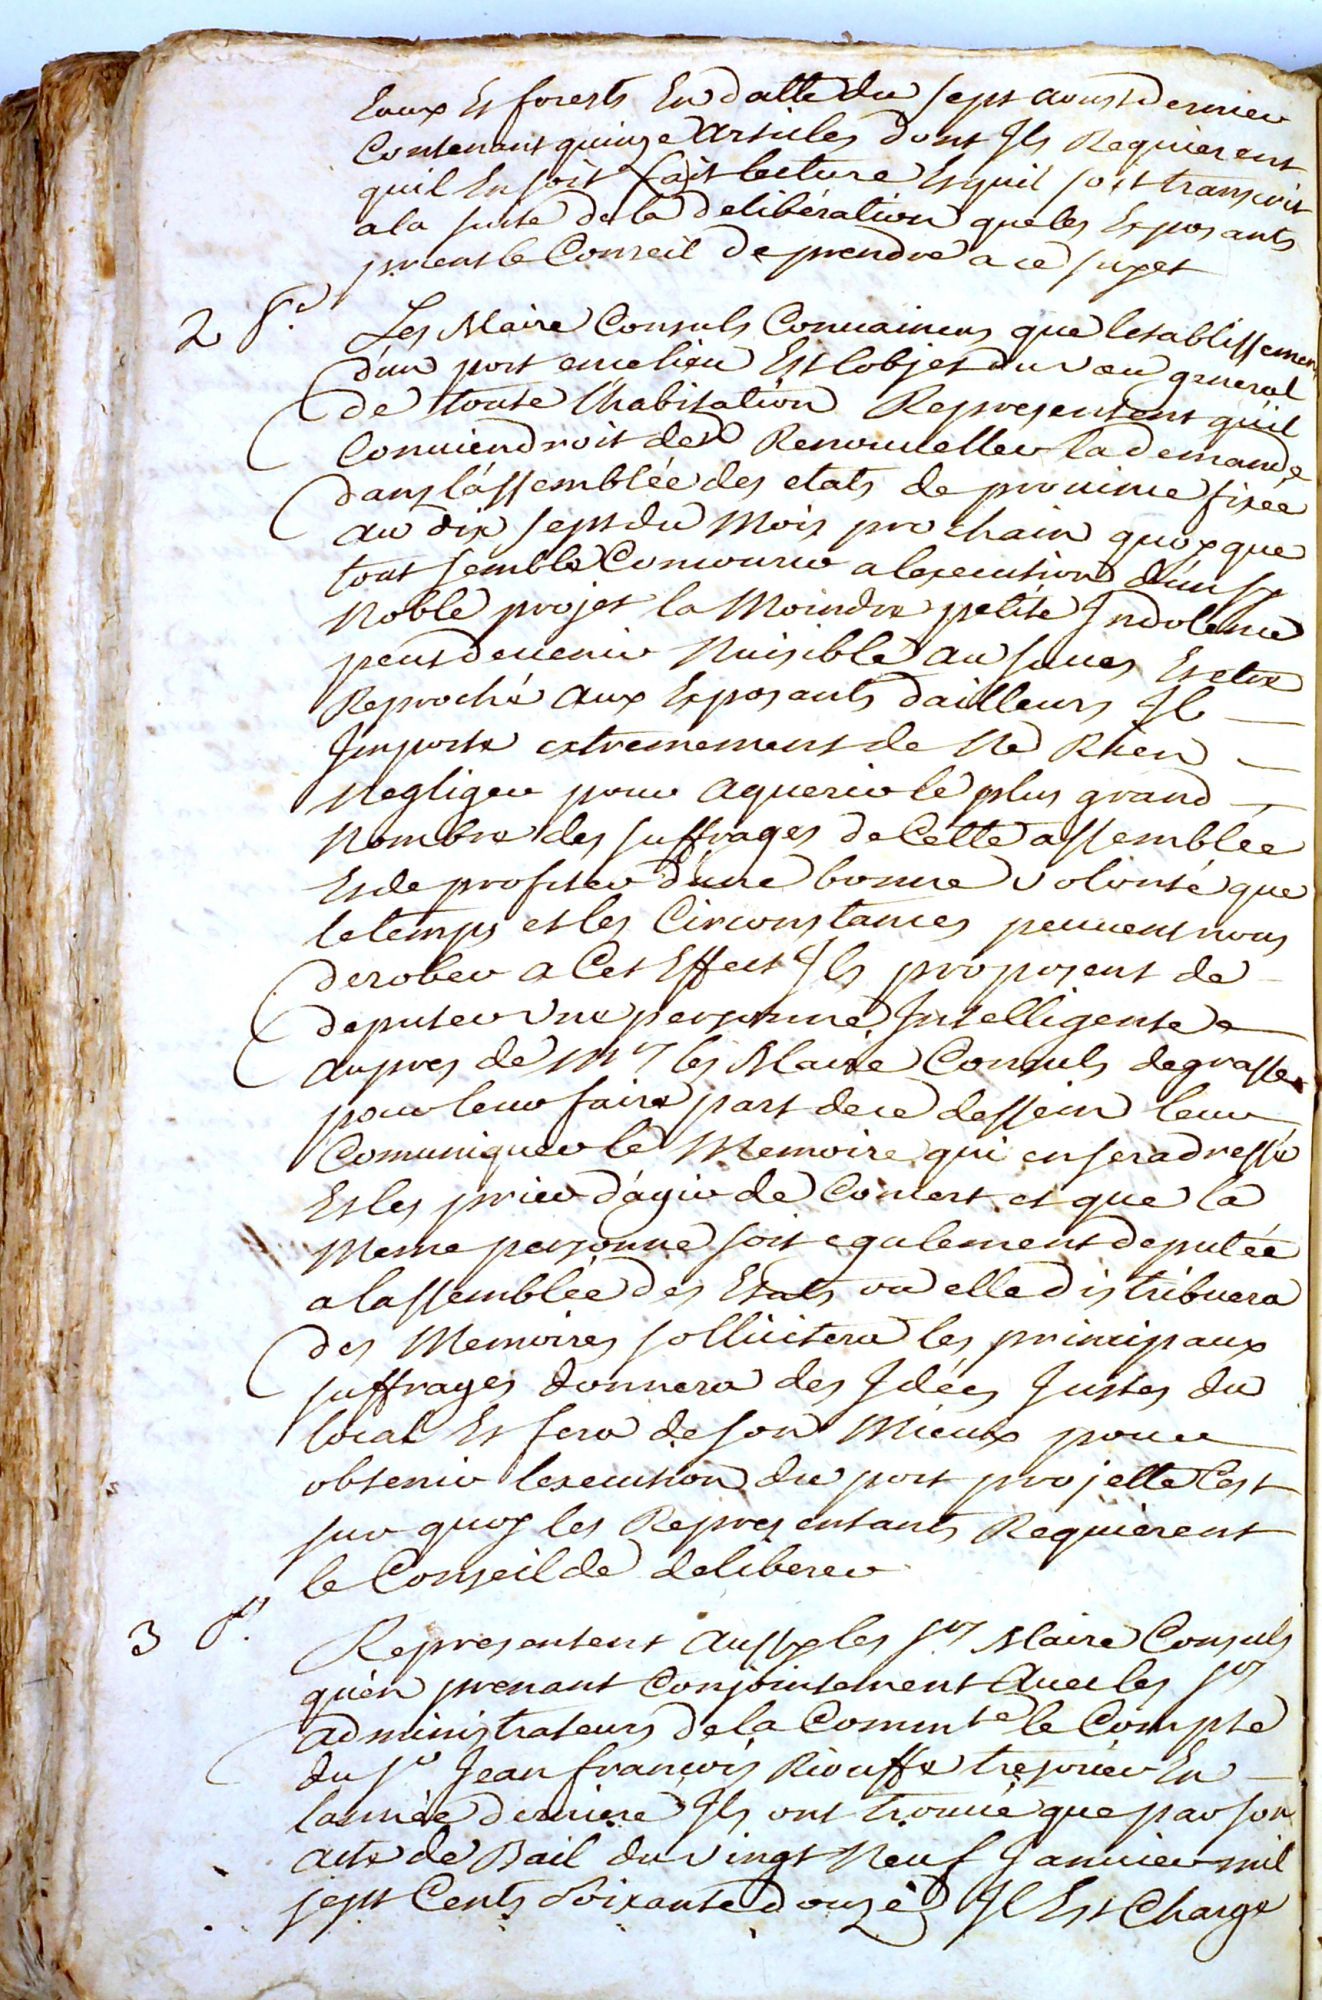 Eaux Et forests En datte du sept aoust dernier
Contenant quinze articles dont Ils Requierent
quil En soit fait lecture Et quil soit transcrit
a la suite de la deliberation que les Exposants
prient le Conseil de prendre a ce sujet
2 Les Maire Consuls Convaincus que letablissement
d'un port en ce lieu Est lobjet du vœu general
de toute l'habitation Representent quil
Conviendroit den Renouveller la demande
dans l'assemblée des etats de province fixée
au dix sept du Mois prochain quoyque
tout semble Concourir a lexecution d'un sy
Noble projet la Moindre petite Indolence
peut devenir Nuisible au succes Et etre
Reproché aux Exposants d'ailleurs Il
Importe extremement de Ne Rien
Negliger pour aquerir le plus grand
Nombre des suffrages de Cette assemblée
Et de profiter d'une bonne volonté que
le temps et les Circonstances peuvent nous
derober a Cet Effect Ils proposent de
deputer une personne Intelligente
aupres de Mrs les Maire Consuls de grasse
pour leur faire part de ce dessein leur
Comuniquer le Memoire qui en sera dressé
Et les prier d'agir de Concert et que la
Meme personne soit egalement deputée
a lassemblée des Etats ou elle distribuera
des Memoires sollicitera les principaux
suffrages donnera des Idées Justes du
local Et fera de son Mieux pour
obtenir lexecution du port projetté Cest
sur quoy les Representants Requierent
le Conseil de deliberer
3 Representent aussy les srs Maire Consuls
qu'en prenant Conjointement avec les srs
administrateurs de la Commté le Compte
du sr Jean francois Riouffe tresorier En
lannée derniere Ils ont trouvé que par son
acte de Bail du vingt Neuf Janvier mil
sept Cents soixante douze Il Est Chargé